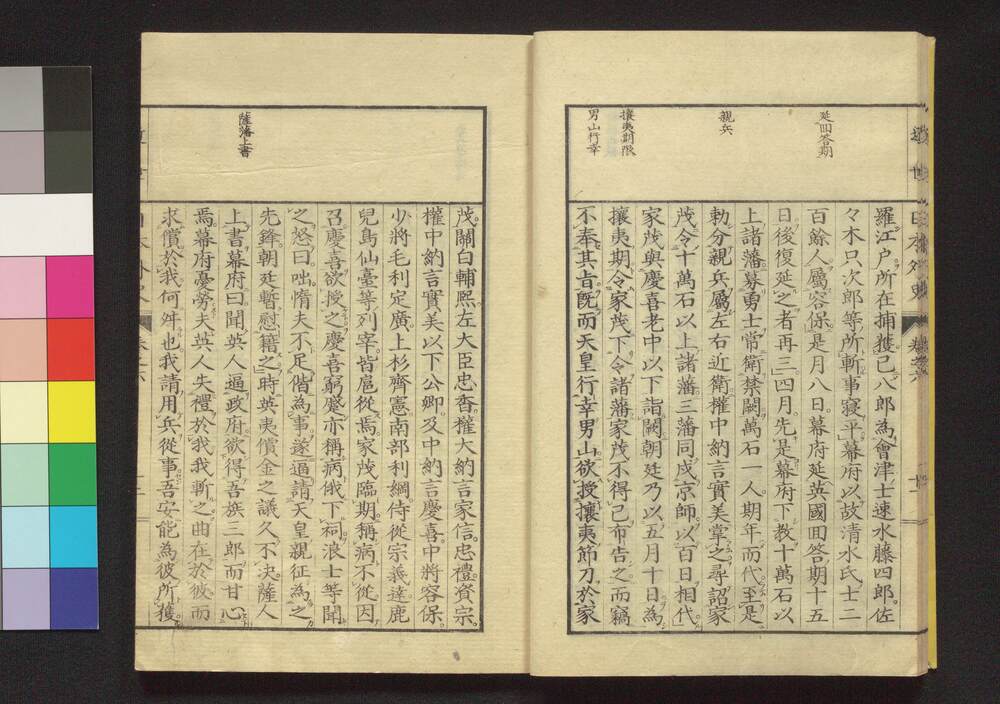 延回答期
親兵
攘夷期限
男山行幸
羅江戸所在捕獲已八郎為會津士速水藤四郎佐
々木只次郎等所斬事寝乎幕府以故清水氏士二
百餘人屬容保是月八日幕府延英國回答期十五
日後復延之者再三四月先是幕府下教十萬石以
上諸藩募勇士常衛禁闕萬石一人期年而代至是
勅分親兵屬左右近衛權中納言實美掌之尋詔家
茂令十萬石以上諸藩三藩同戍京師以百日相代
家茂與慶喜老中以下詣闕朝廷乃以五月十日為
攘夷期令家茂下令諸藩家茂不得已布告之而竊
不奉其旨既而天皇行幸男山欲授攘夷節刀於家
薩藩上書
茂關白輔熙左大臣忠香權大納言家信忠禮資宗
權中納言實美以下公卿及中納言慶喜中將容保
少將毛利定廣上杉齊憲南部利綱侍從宗義達鹿
兒島仙臺等列宰皆扈從焉家茂臨期稱病不從因
召慶喜欲授之慶喜窮蹙亦稱病俄下祠浪士等聞
之怒曰咄惰夫不足偕為事遂逼請天皇親征為之
先鋒朝廷暫慰籍之時英夷償金之議久不決薩人
上書幕府曰聞英人逼政府欲得吾族三郎而甘心
焉幕府憂勞夫英人失禮於我我斬之曲在於彼而
求償於我何舛也我請用兵從事吾安能為彼所獲